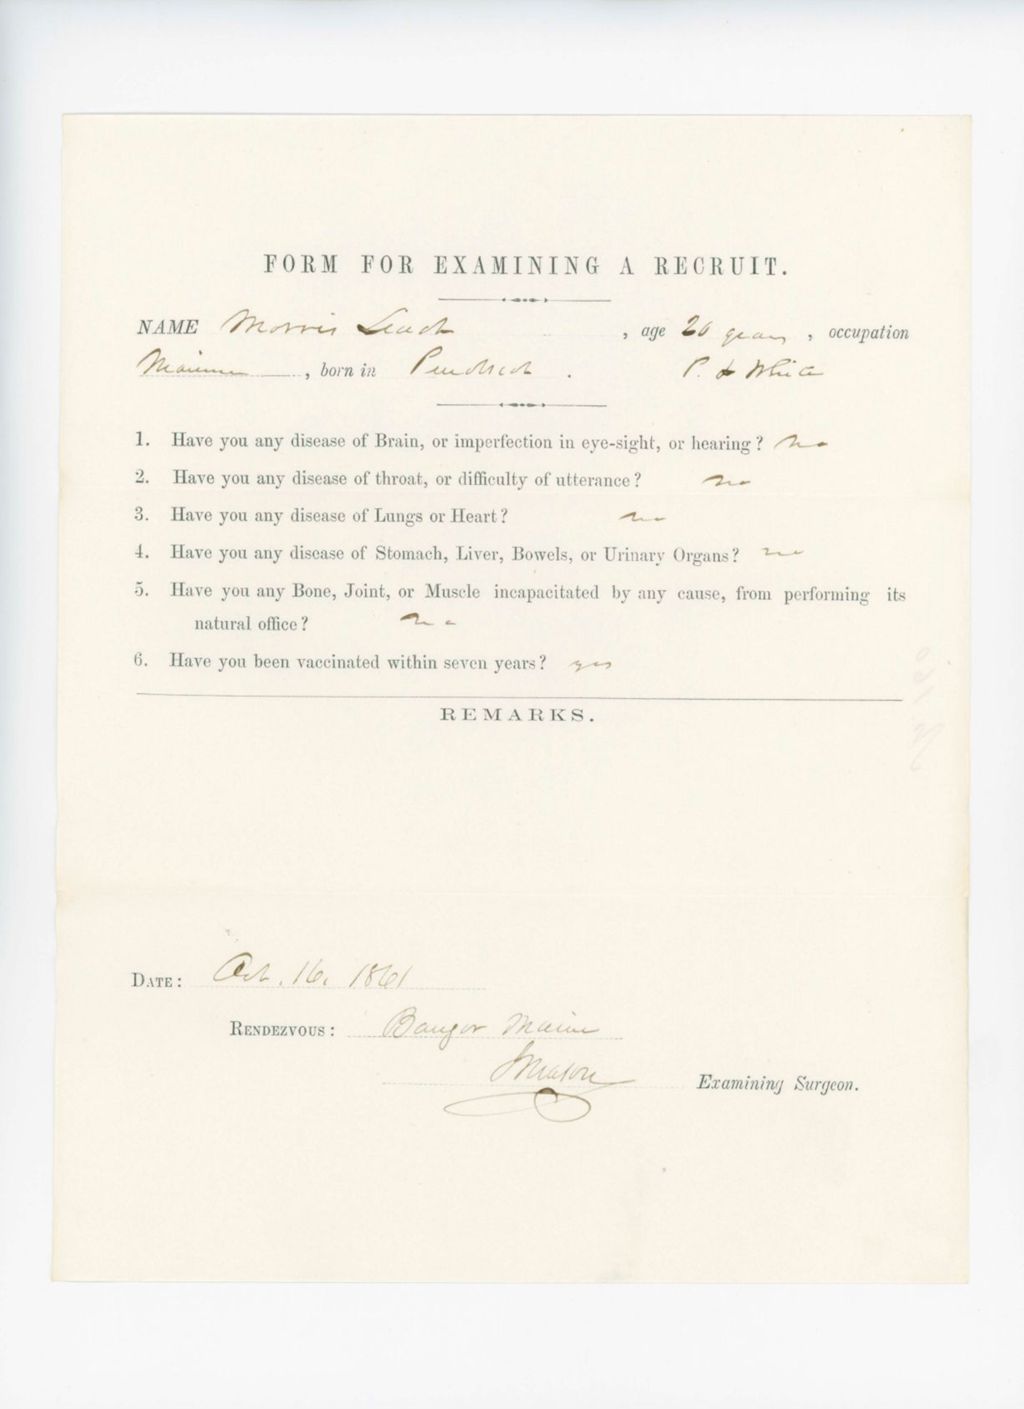 FORM FOR EXAMINING A RECRUIT.
NAME Morris Leach , age 20 years , occupation
Mariner , born in Penobscot .
1. Have you any disease of Brain, or imperfection in eye-sight, or hearing? no
2. Have you any disease of throat, or difficulty of utterance? no
3. Have you any disease of Lungs or Heart? no
4. Have you any disease of Stomach, Liver, Bowels, or Urinary Organs? no
5. Have you any Bone, Joint, or Muscle incapacitated by any cause, from performing its
natural office? no
6. Have you been vaccinated within seven years? yes
REMARKS.
DATE: Oct. 16, 1861
RENDEZVOUS: Bangor Maine
Examining Surgeon.